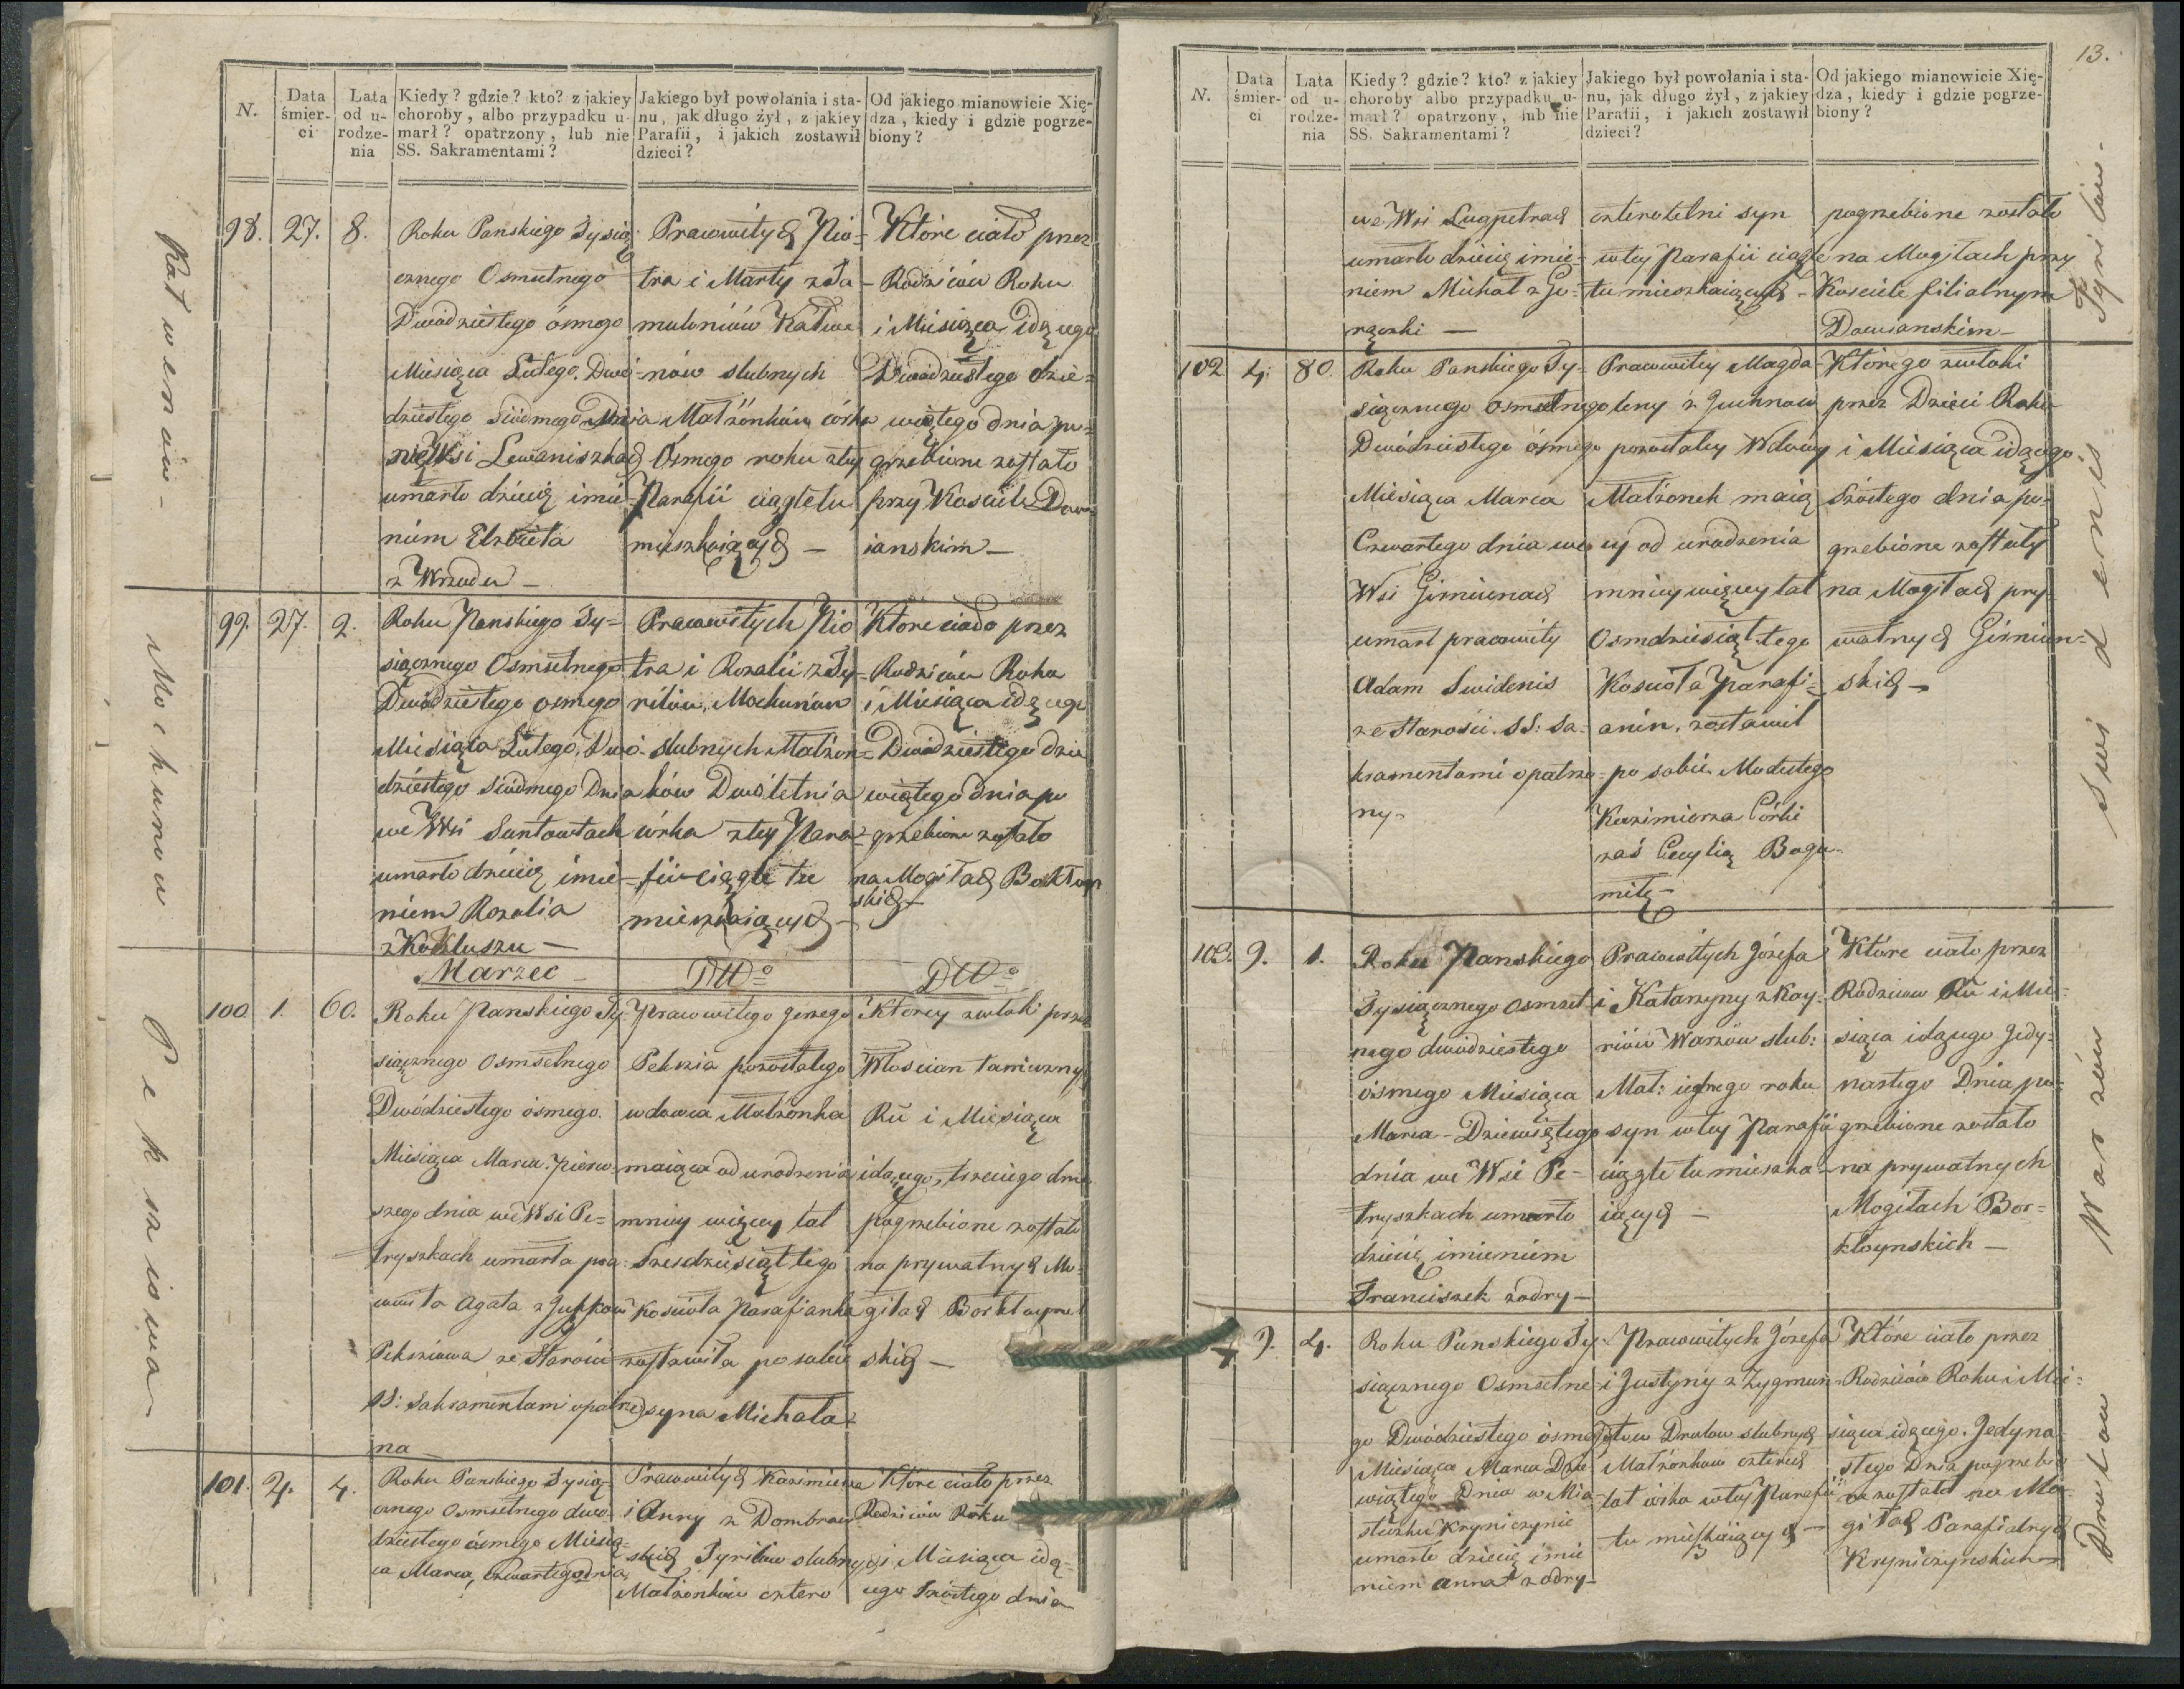 N.
Data śmier-
ci
Lata
od u-
rodze-
nia
Kiedy? gdzie? kto? z jakiey
choroby, albo przypadku u-
marł? opatrzony, lub nie
SS. Sakramentami?
Jakiego był powołania i sta-
nu, jak długo żył, z jakiey
Parafii, i jakich zostawił
dzieci?
Od jakiego mianowicie Xię-
dza, kiedy i gdzie pogrze-
biony?
98. 27. 8.
Roku Panskiego Tysią-
cznego Osmsetnego
Dwódziestego ósmego
Miesiąca Lutego. Dwó-
dziestego Siódmego Dnia
we Wsi Lewaniszkach
umarło dziecię imie-
niem Elzbieta
z Wrzodu —
Prawowitych Pio-
tra i Marty z
nów slubnych
Małżonków córka
Ósmego roku z tey
Parafii ciągle tu
mieszkaiących —
Które ciało przez
Rodziców Roku
i Miesiąca idącego
Dwódziestego dzie-
wiątego dnia po-
grzebione zostało
przy Kosciele Dow-
ianskim —
99. 27. 2.
Roku Panskiego Ty-
siącznego Osmsetnego
Dwódziestego osmego
Miesiąca Lutego, Dwó-
dziestego Siódmego Dnia
we Wsi Suntowtach
umarło dziecię imie-
niem Rozalia
z Kokluszu —
Prawowitych Pio
tra i Rozalii z Ty-
rilów, Mochunów
slubnych Małżon-
ków Dwóletnia
córka z tey Para-
fii ciągle tu
mieszkaiących —
Które ciało przez
Rodziców Roku
i Miesiąca idącego
Dwódziestego dzie
wiątego dnia po
grzebione zostało
na Mogiłach Bokłoyn
skich —
Marzec
Dtto
Dtto
100 1. 60.
Roku Panskiego Ty-
siącznego Osmsetnego
Dwódziestego ósmego.
Miesiąca Marca. Pierw-
szego dnia we Wsi Pe-
tryszkach umarła pra-
wowita Agata z
Peksziowa ze Starości
SS: Sakramentami opatrzo
na —
Prawowitego Jerzego
Pekszia pozostałego
wdowca Małżonka
maiąca od urodzenia
mniey więcey lat
Szesdziesiąt tego
Koscioła Parafianka
zostawiła po sobie
syna Michała
Ktorey zwłoki przez
Włoscian tamecznych
Ru i Miesiąca
idącego, trzeciego dnia
pogrzebione zostało
na prywatnych Mo-
giłach Borkłoyn
skich —
101. 4. 4.
Roku Panskiego Tysią-
cznego Osmsetnego dwó-
dziestego ósmego Miesią-
ca Marca, Czwartego dnia
Prawowitych Kazimierza
i Anny z Dombrow-
skich Tyrilów slubnych
Małżonków cztero
Które ciało przez
Rodziców Roku
i Miesiąca idą-
cego Szóstego dnia
Mochunow
Peksziowa
13.
N.
Data
śmier-
ci
Lata
od u-
rodze-
nia
Kiedy? gdzie? kto? z jakiey
choroby albo przypadku u-
marł? opatrzony, lub nie
SS. Sakramentami?
Jakiego był powołania i sta-
nu, jak długo żył, z jakiey
Parafii, i jakich zostawił
dzieci?
Od jakiego mianowicie Xię-
dza, kiedy i gdzie pogrze-
biony?
we Wsi Lugpetrach
umarło dziecię imie-
niem Michał z Go-
rączki —
czteroletni syn
w tey Parafii ciągle
tu mieszkaiących —
pogrzebione zostało
na Mogiłach przy
Kosciele filialnym
Dowianskim —
102 4. 80.
Roku Panskiego Ty-
siącznego Osmsetnego
Dwódziestego ósmego
Miesiąca Marca
Czwartego dnia we
Wsi Girniunach
umarł pracowity
Adam Swidenis
ze Starości. SS: Sa-
kramentami opatrzo-
ny —
Prawowitey Magda-
leny z Juchnow
pozostałey Wdowy
Małżonek maią
cy od urodzenia
mniey więcey lat
Osmdziesiąt tego
Koscioła Parafi-
anin, zostawił
po sobie Modestego
Kazimierza Córki
zaś Cecylią Bogu-
miłę —
Którego zwłoki
przez Dzieci Roku
i Miesiąca idącego
Szóstego dnia po-
grzebione zostały
na Mogiłach pry-
watnych Girniun-
skich —
103. 9. 1.
Roku Panskiego
Tysiącznego Osmset
nego dwódziestego
ósmego Miesiąca
Marca — Dziewiątego
dnia we Wsi Pe-
tryszkach umarło
dziecię imieniem
Franciszek z odry —
Prawowitych Józefa
i Katarzyny z Kay-
riów Warzów slub:
Mał: iednego roku
syn w tey Parafii
ciągle tu mieszka-
iących —
Które ciało przez
Rodziców Ru i Mie-
siąca idącego Jedy-
nastego Dnia po-
grzebione zostało
na prywatnych
Mogiłach Bor-
kłoynskich —
9. 4.
Roku Panskiego Ty-
siącznego Osmsetne-
go Dwódziestego ósmego
Miesiąca Marca Dzie-
wiątego Dnia w Mia-
steczku Kryniczynie
umarło dziecię imie
niem Anna z odry —
Prawowitych Józefa
i Justyny z Zygmun-
tow Drutow slubnych
Małżonkow czterech
lat córka w tey Parafii
tu mieszkaiących —
Które ciało przez
Rodziców Roku i Mie-
siąca idącego. Jedyna-
stego Dnia pogrzebio
ne zostało na Mo-
giłach Parafialnych
Kryniczynskich —
Tyrilow —
Swidenis
Warzów
Drutow